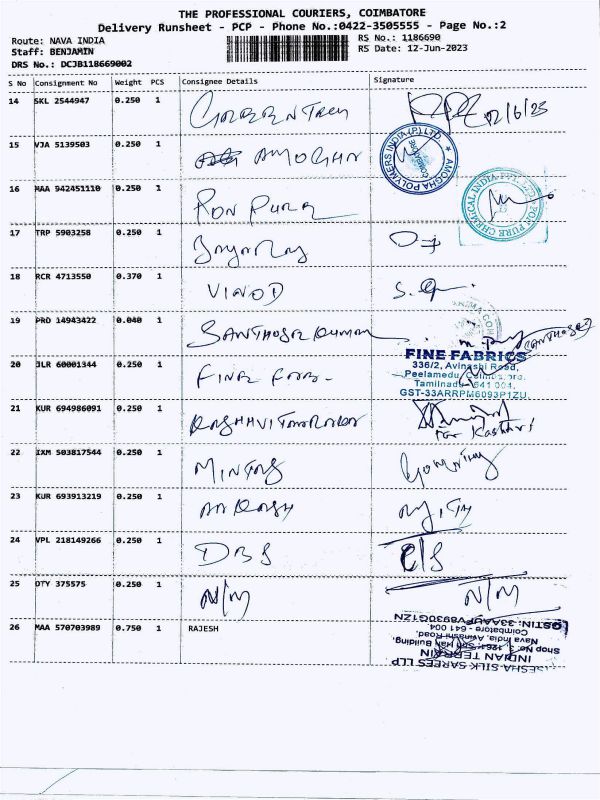 THE PROFESSIONAL COURIERS, COIMBATORE
Delivery Runsheet - PCP - Phone No.:0422-3505555 - Page No.:2
Route: NAVA INDIA
Staff: BENJAMIN
DRS No.: DCJB118669002
RS No.: 1186690
RS Date: 12-Jun-2023
S No Consignment No Weight PCS Consignee Details Signature
14 SKL 2544947 0.250 1 12/6/23
15 VJA 5139503 0.250 1 AMOGHA
AMOGHA POLYMERS INDIA (P) LTD. COIMBATORE
16 MAA 942451110 0.250 1 RON PURE
RON PURE CHEMICAL INDIA PVT. LTD.
17 TRP 5903258 0.250 1
18 RCR 4713550 0.370 1 VINOD
19 PRO 14943422 0.040 1 SANTHOSH KUMAR
20 JLR 60001344 0.250 1
FINE FABRICS
336/2, Avinashi Road,
Peelamedu, Coimbatore,
Tamilnadu 641 004,
GST-33ARRPM6093P1ZU,
21 KUR 694986091 0.250 1
22 IXM 503817544 0.250 1
23 KUR 693913219 0.250 1 AAKASH AJITH
24 VPL 218149266 0.250 1 DBS C/S
25 OTY 375575 0.250 1 N/M N/M
26 MAA 570703989 0.750 1 RAJESH
SESHA SILK SAREES LLP
INDIAN TERRAIN
Nava India, Avinashi Road,
Coimbatore - 641 004